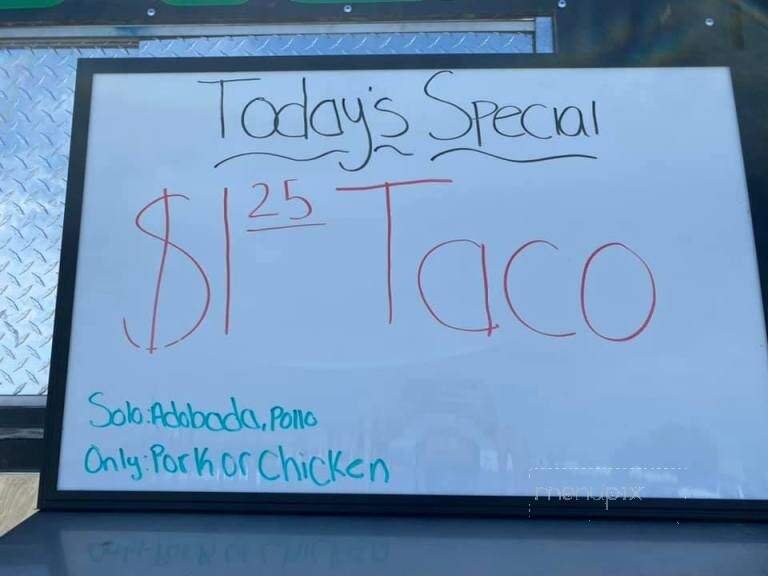 Today's Special
$1 25 Taco
Solo: Adobada, Pollo
Only: Pork or Chicken
menupix